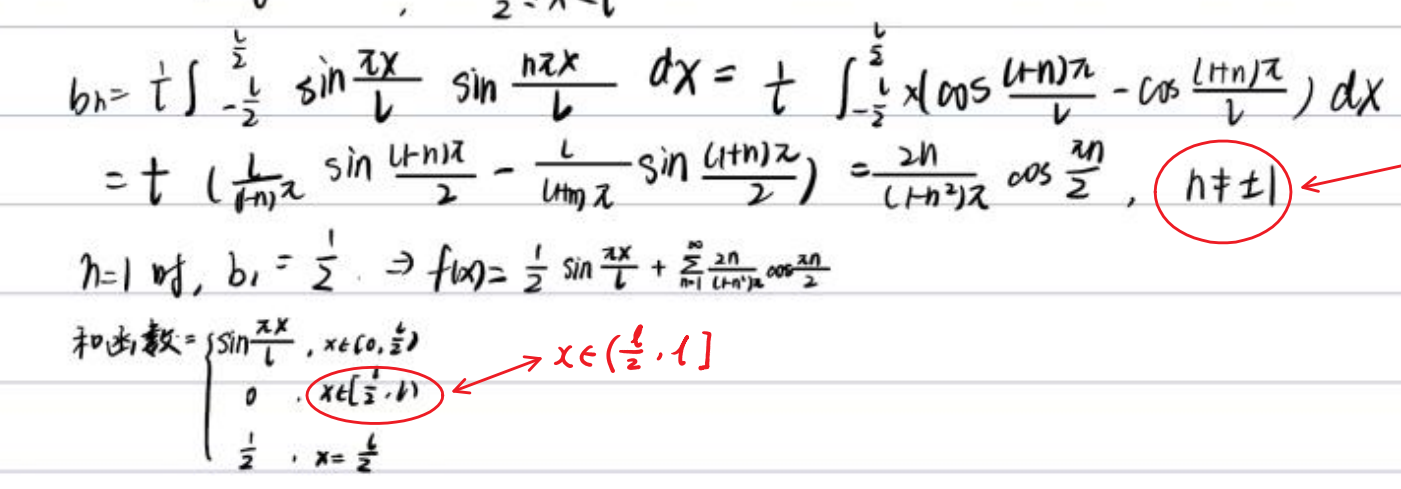 bn = 1/l ∫_{-l/2}^{l/2} sin πx/l sin nπx/l dx = 1/l ∫_{-l/2}^{l/2} x(cos (1-n)π/l - cos (1+n)π/l) dx
= 1/l (l/(1-n)π sin (1-n)π/2 - l/(1+n)π sin (1+n)π/2) = 2n/(1-n²)π cos πn/2 , n≠±1
n=1 时, b₁ = 1/2 . ⇒ f(x) = 1/2 sin πx/l + ∑_{n=1}^{∞} 2n/(1-n²)π cos πn/2
和函数 = { sin πx/l , x∈(0, l/2)
x∈(l/2, l]
0 , x∈[l/2, l)
1/2 , x = l/2